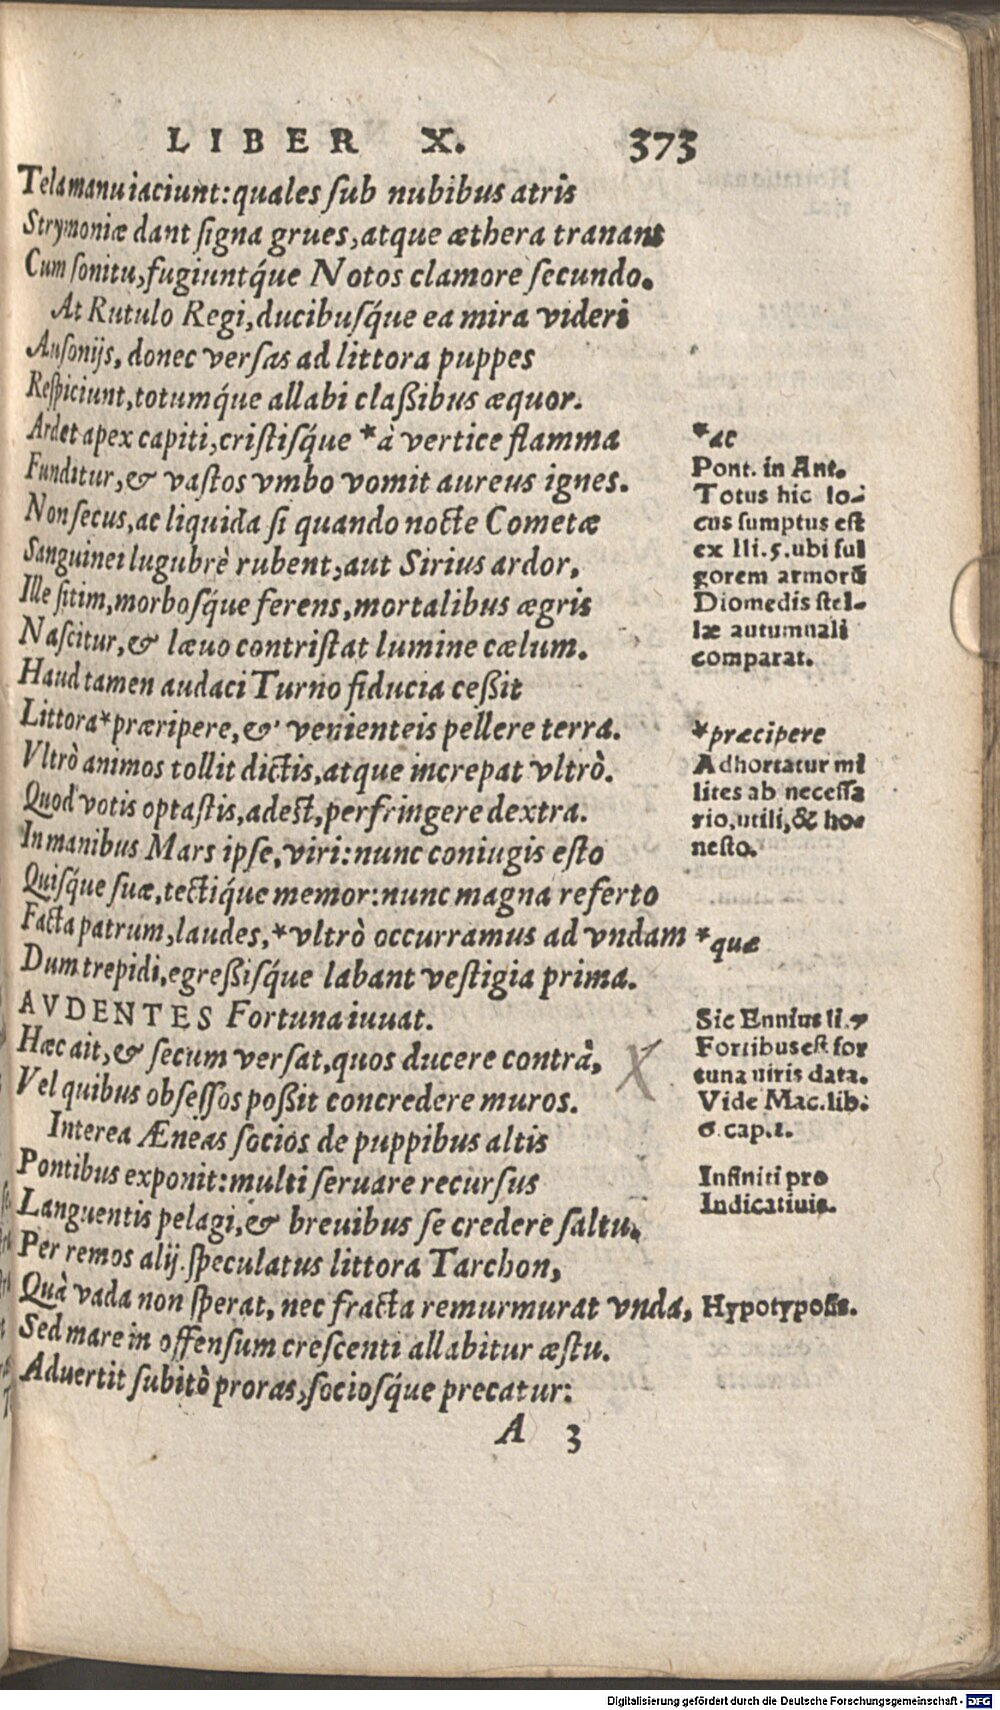 LIBER X. 373
Tela manu iaciunt: quales ſub nubibus atris
Strymoniæ dant ſigna grues, atque æthera tranant
Cum ſonitu, fugiuntq́ue Notos clamore ſecundo.
At Rutulo Regi, ducibuſq́ue ea mira videri
Auſonijs, donec verſas ad littora puppes
Reſpiciunt, totumq́ue allabi claßibus æquor.
Ardet apex capiti, criſtiſq́ue *à vertice flamma
Funditur, & vaſtos vmbo vomit aureus ignes.
Non ſecus, ac liquida ſi quando nocte Cometæ
Sanguinei lugubrè rubent, aut Sirius ardor,
Ille ſitim, morboſq́ue ferens, mortalibus ægris
Naſcitur, & læuo contriſtat lumine cælum.
Haud tamen audaci Turno fiducia ceßit
Littora *præripere, & venienteis pellere terra.
Vltrò animos tollit dictis, atque increpat vltrò.
Quod votis optaſtis, adest, perfringere dextra.
In manibus Mars ipſe, viri: nunc coniugis eſto
Quiſq́ue ſuæ, tectiq́ue memor: nunc magna referto
Facta patrum, laudes, *vltrò occurramus ad vndam
Dum trepidi, egreßiſq́ue labant veſtigia prima.
AVDENTES Fortuna iuuat.
Hæc ait, & ſecum verſat, quos ducere contrà,
Vel quibus obſeſſos poßit concredere muros.
Interea Æneas ſocios de puppibus altis
Pontibus exponit: multi ſeruare recurſus
Languentis pelagi, & breuibus ſe credere ſaltu.
Per remos alij. ſpeculatus littora Tarchon,
Quà vada non ſperat, nec fracta remurmurat vnda,
Sed mare in offenſum creſcenti allabitur æſtu.
Aduertit ſubitò proras, ſocioſq́ue precatur:
A 3
*ac
Pont. in Ant.
Totus hic lo-
cus ſumptus eſt
ex Ili. 5. ubi ful
gorem armorū
Diomedis ſtel-
læ autumnali
comparat.
*præcipere
Adhortatur mi
lites ab neceſſa
rio, utili, & ho-
neſto.
*quæ
Sic Ennius li. 7
Fortibus eſt for
tuna uiris data.
Vide Mac. lib.
6 cap. 1.
Infiniti pro
Indicatiuis.
Hypotypoſis.
X
Digitalisierung gefördert durch die Deutsche Forschungsgemeinschaft - DFG